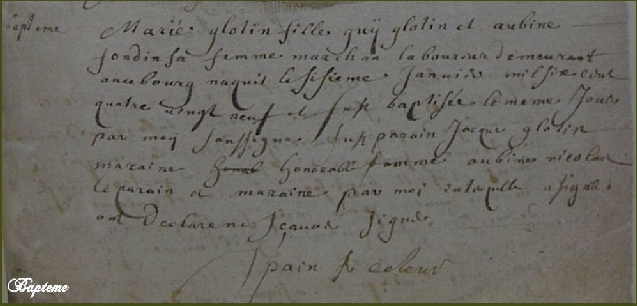 Bapteme
Marie glotin fille guy glotin et aubine
jondin sa femme marchan laboureur demeurant
au bourg naquit le sisieme Janvier mil six cent
quatre vingt neuf et fust baptisée le meme Jour
par moy soussigne fust parain Jacque glotin
maraine honorable femme aubine nicolas
le parain et maraine par moi intepellé a signé
ont declare ne sçavoir signé
recteur
Bapteme